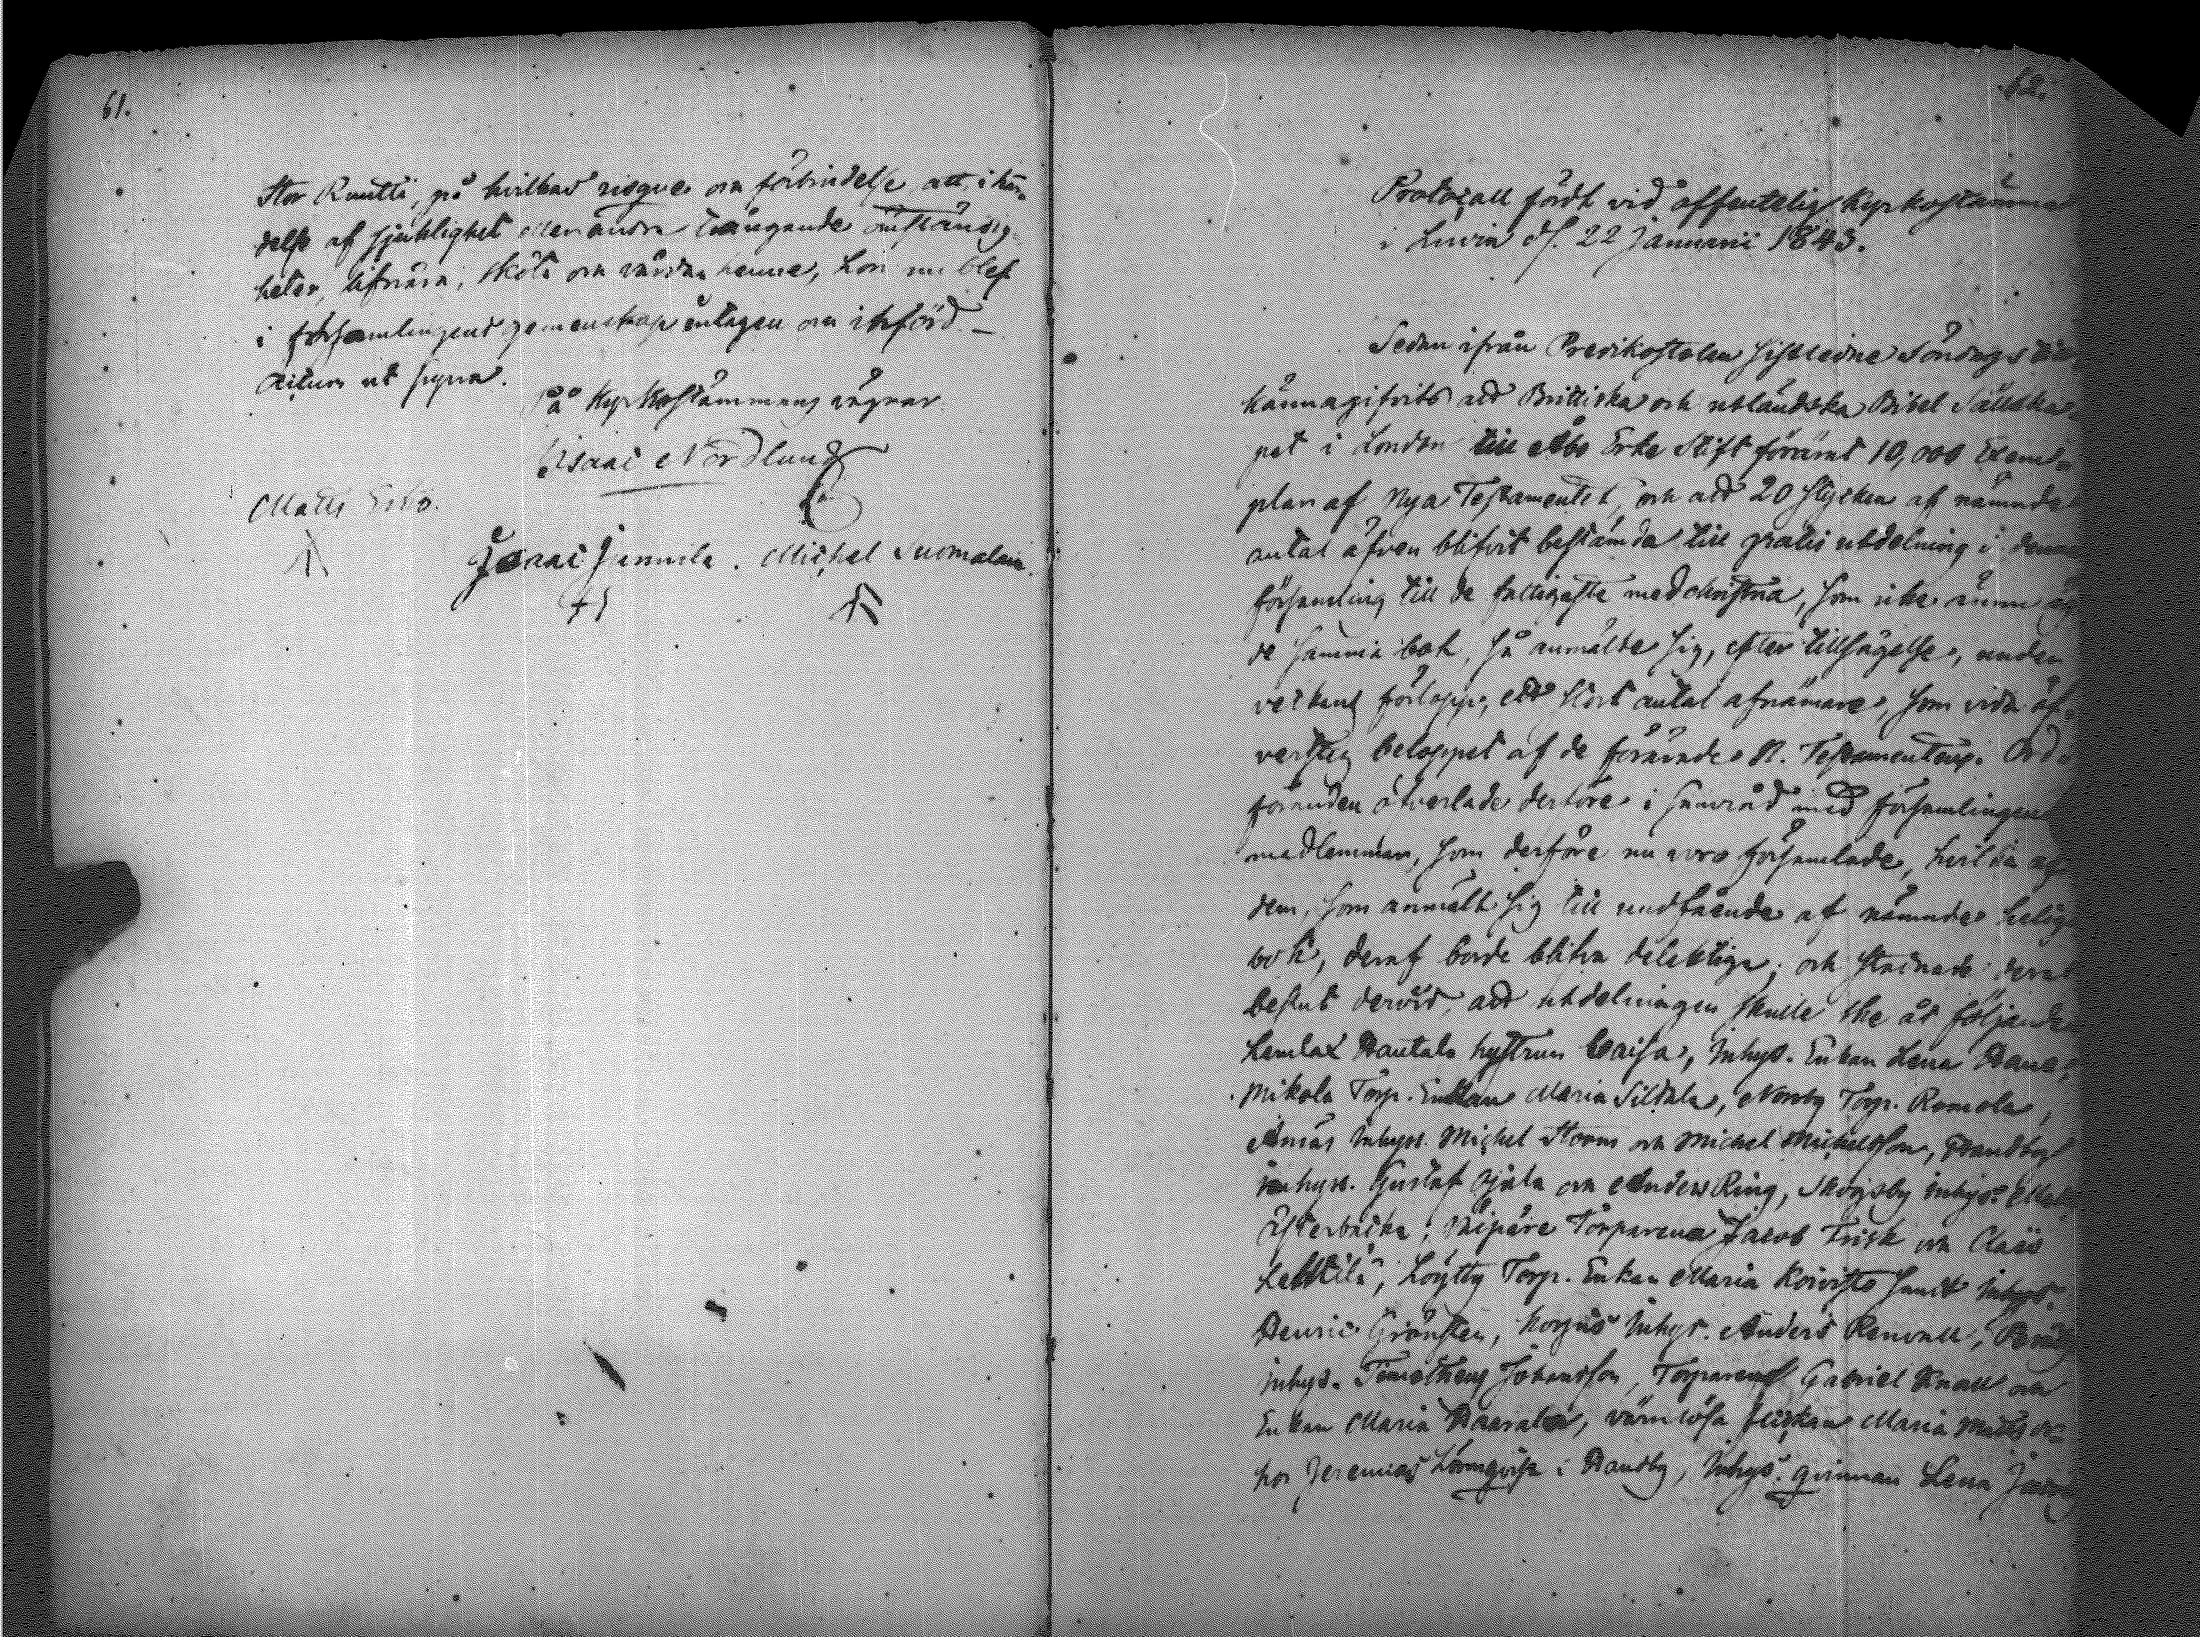 61.
Stor Knutti, på hvilkas risque och förbindelse att, i hän-
delse af sjuklighet eller andra trängande omständig-
heter, lifnära, sköta och vårda henne, hon nu blef
i församlingens gemenskap intagen och införd. —
Actum ut supra.
På Kyrkostämmans vägnar
Isaac Nordlund
Matts Erko.
Isaac Jannila. Michel Suomalain
62.
Protocoll fördt vid offentelig Kyrkostämma
i Luvia d. 22 Januarii 1843.
Sedan ifrån Predikostolen sistledne Söndag
kännagifvits att Brittiska och utländska Bibel Sällska-
pet i London till Åbo Erke Stift förärat 10,000 Exem-
plar af Nya Testamentet, och att 20 stycken af nämnda
antal äfven blifvit bestämda till gratis utdelning i denna
församling till de fattigaste medchristna, som icke ännu äg
de samma bok, så anmälte sig, efter tillsägelse, under
veckans förlopp, ett stort antal afnämare, som vida öf-
versteg beloppet af de förärade N. Testamenterne. Ord-
föranden öfverlade derföre i samråd med församlingens
medlemmar, som derföre nu voro församlade, hvilka af
dem, som anmält sig till undfående af nämnde helig
bok, deraf borde blifva delaktiga; och stadnade deras
beslut dervid, att utdelningen skulle ske åt följande
Lemlax Hautala hustrun Caisa, Inhys. Enkan Lena
Mikola Torp. Enkan Maria Sildala, Norrby Torp. Romola,
Inhys. Michel Storm och Michel Michelsson,
inhys. Gustaf och Anders Ring, Skogsby inhys.
Österbacka, Torparena Jacob Frisk och Claës
Löytty Torp. Enkan Maria Koivisto samt Inhys.
Henric Grönsten, Korpus Inhys. Anders Renvall,
Inhys. Timotheus Johansson, Torparens Gabriel Knall och
Enkan Maria värnlösa flickan Maria
hos Jeremias Lönnqvist i Inhys. qvinnan Lena